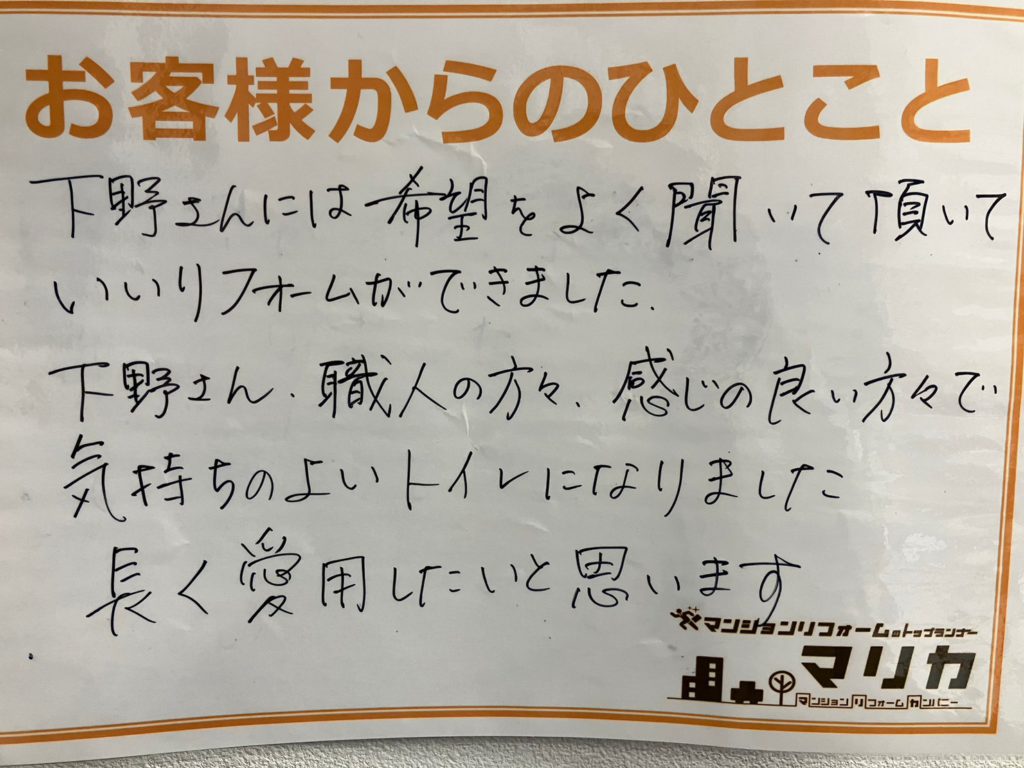 お客様からのひとこと
下野さんには希望をよく聞いて頂いて
いいリフォームができました.
下野さん、職人の方々、感じの良い方々で
気持ちのよいトイレになりました
長く愛用したいと思います
マンションリフォームのトップランナー
マリカ
マンションリフォームカンパニー